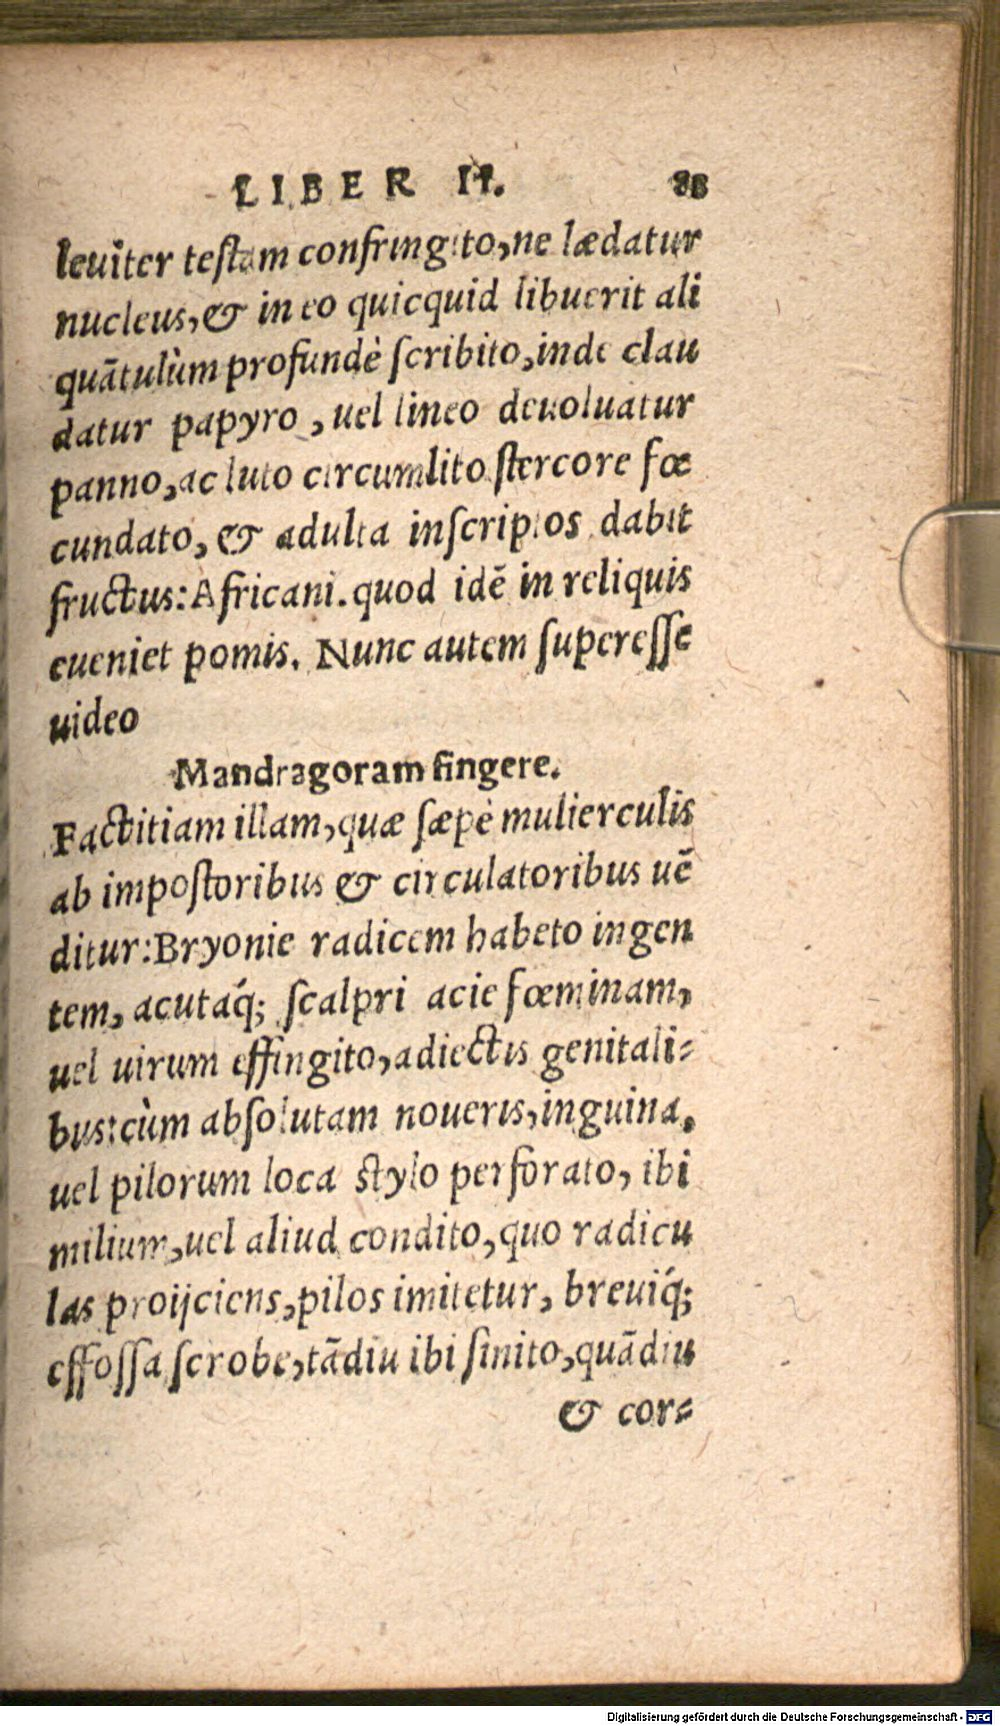 LIBER II. 88
leuiter testam confringito, ne lædatur
nucleus, & in eo quicquid libuerit ali
quātulùm profundè scribito, inde clau
datur papyro, uel lineo deuoluatur
panno, ac luto circumlito stercore fœ
cundato, & adulta inscriptos dabit
fructus: Africani. quod idē in reliquis
eueniet pomis. Nunc autem superesse
uideo
Mandragoram fingere.
Factitiam illam, quæ sæpè mulierculis
ab impostoribus & circulatoribus uē
ditur: Bryonie radicem habeto ingen
tem, acutaq́; scalpri acie fœminam,
uel uirum effingito, adiectis genitali-
bus: cùm absolutam noueris, inguina,
uel pilorum loca stylo perforato, ibi
milium, uel aliud condito, quo radicu
las proijciens, pilos imitetur, breuiq́;
effossa scrobe, tādiu ibi sinito, quādiu
& cor-
Digitalisierung gefördert durch die Deutsche Forschungsgemeinschaft - DFG